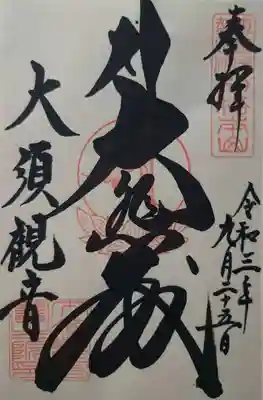 奉拝
令和三年
九月二十五日
大悲殿
大須観音